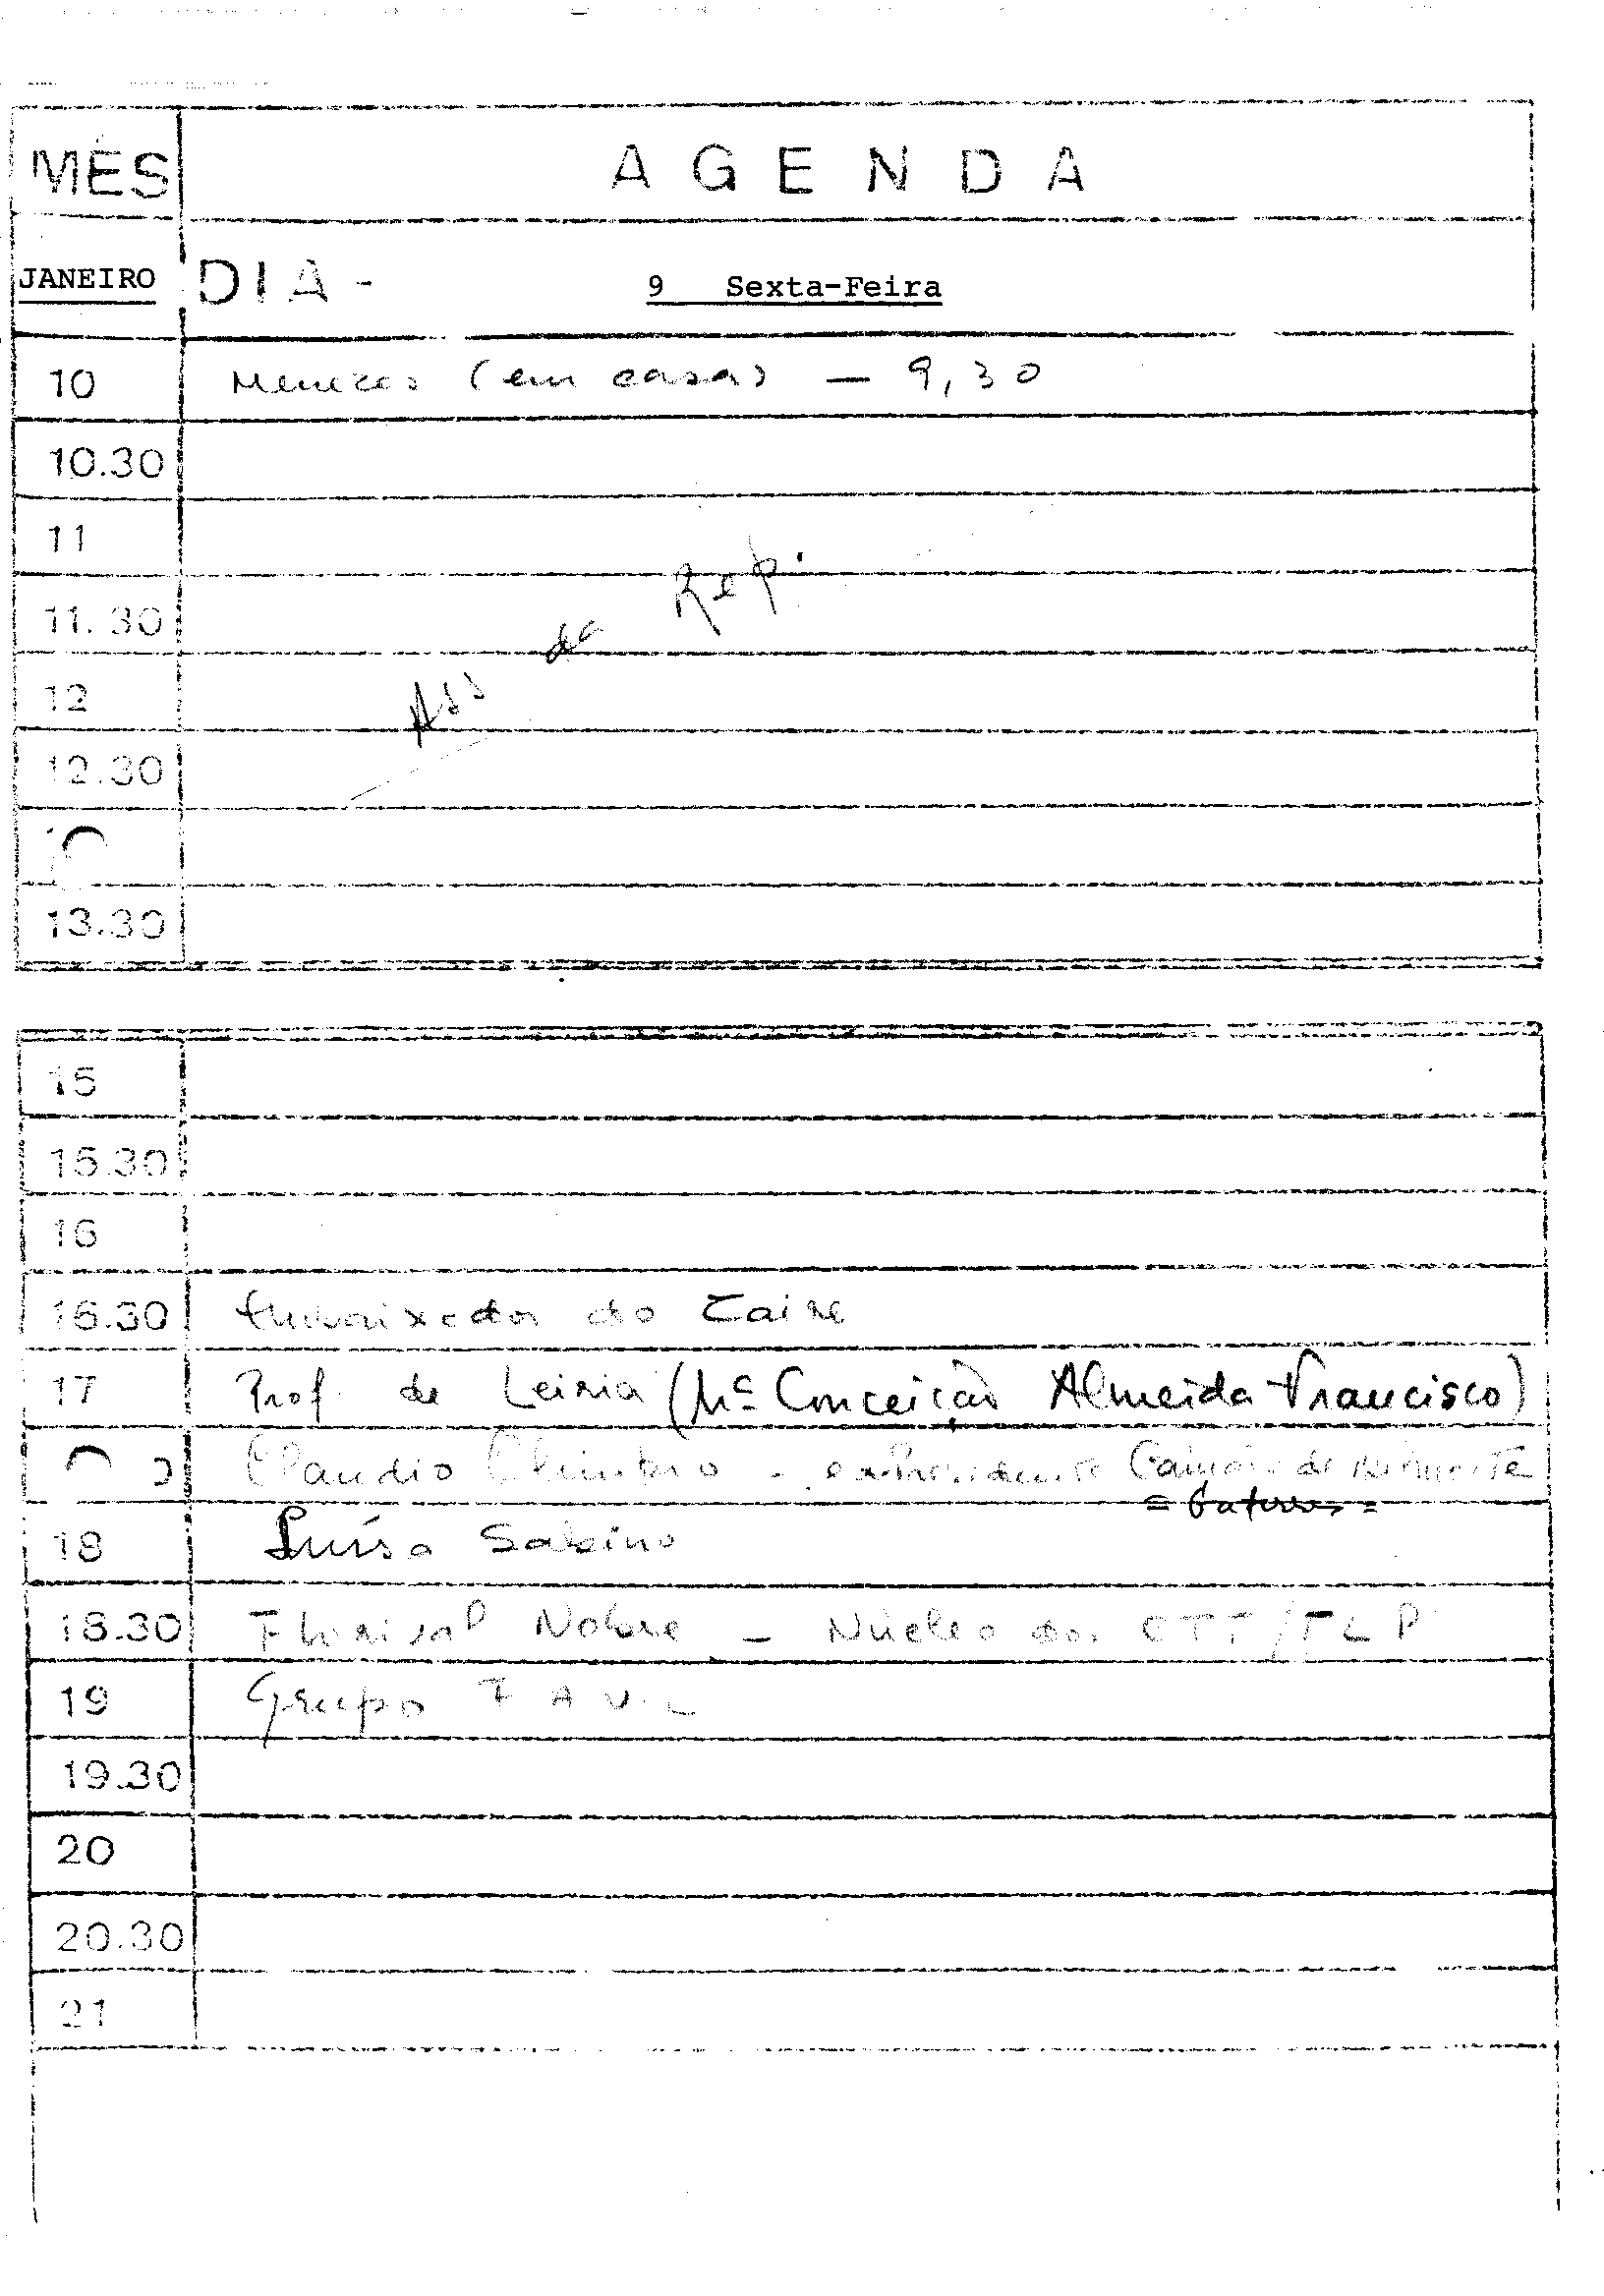 MÊS
A G E N D A
JANEIRO
DIA -
9 Sexta-Feira
10 Menezes (em casa) — 9,30
10.30
11
11.30
12
Ass da Rep.
12.30
13.30
15
15.30
16
16.30 Embaixador do Zaire
17 Prof. de Leiria (Mª Conceição Almeida Francisco)
Claudio - ex Presidente Camara de
18 Luísa Sabino
18.30 Florival Nobre - Núcleo dos CTT/TLP
19 Grupo
19.30
20
20.30
21